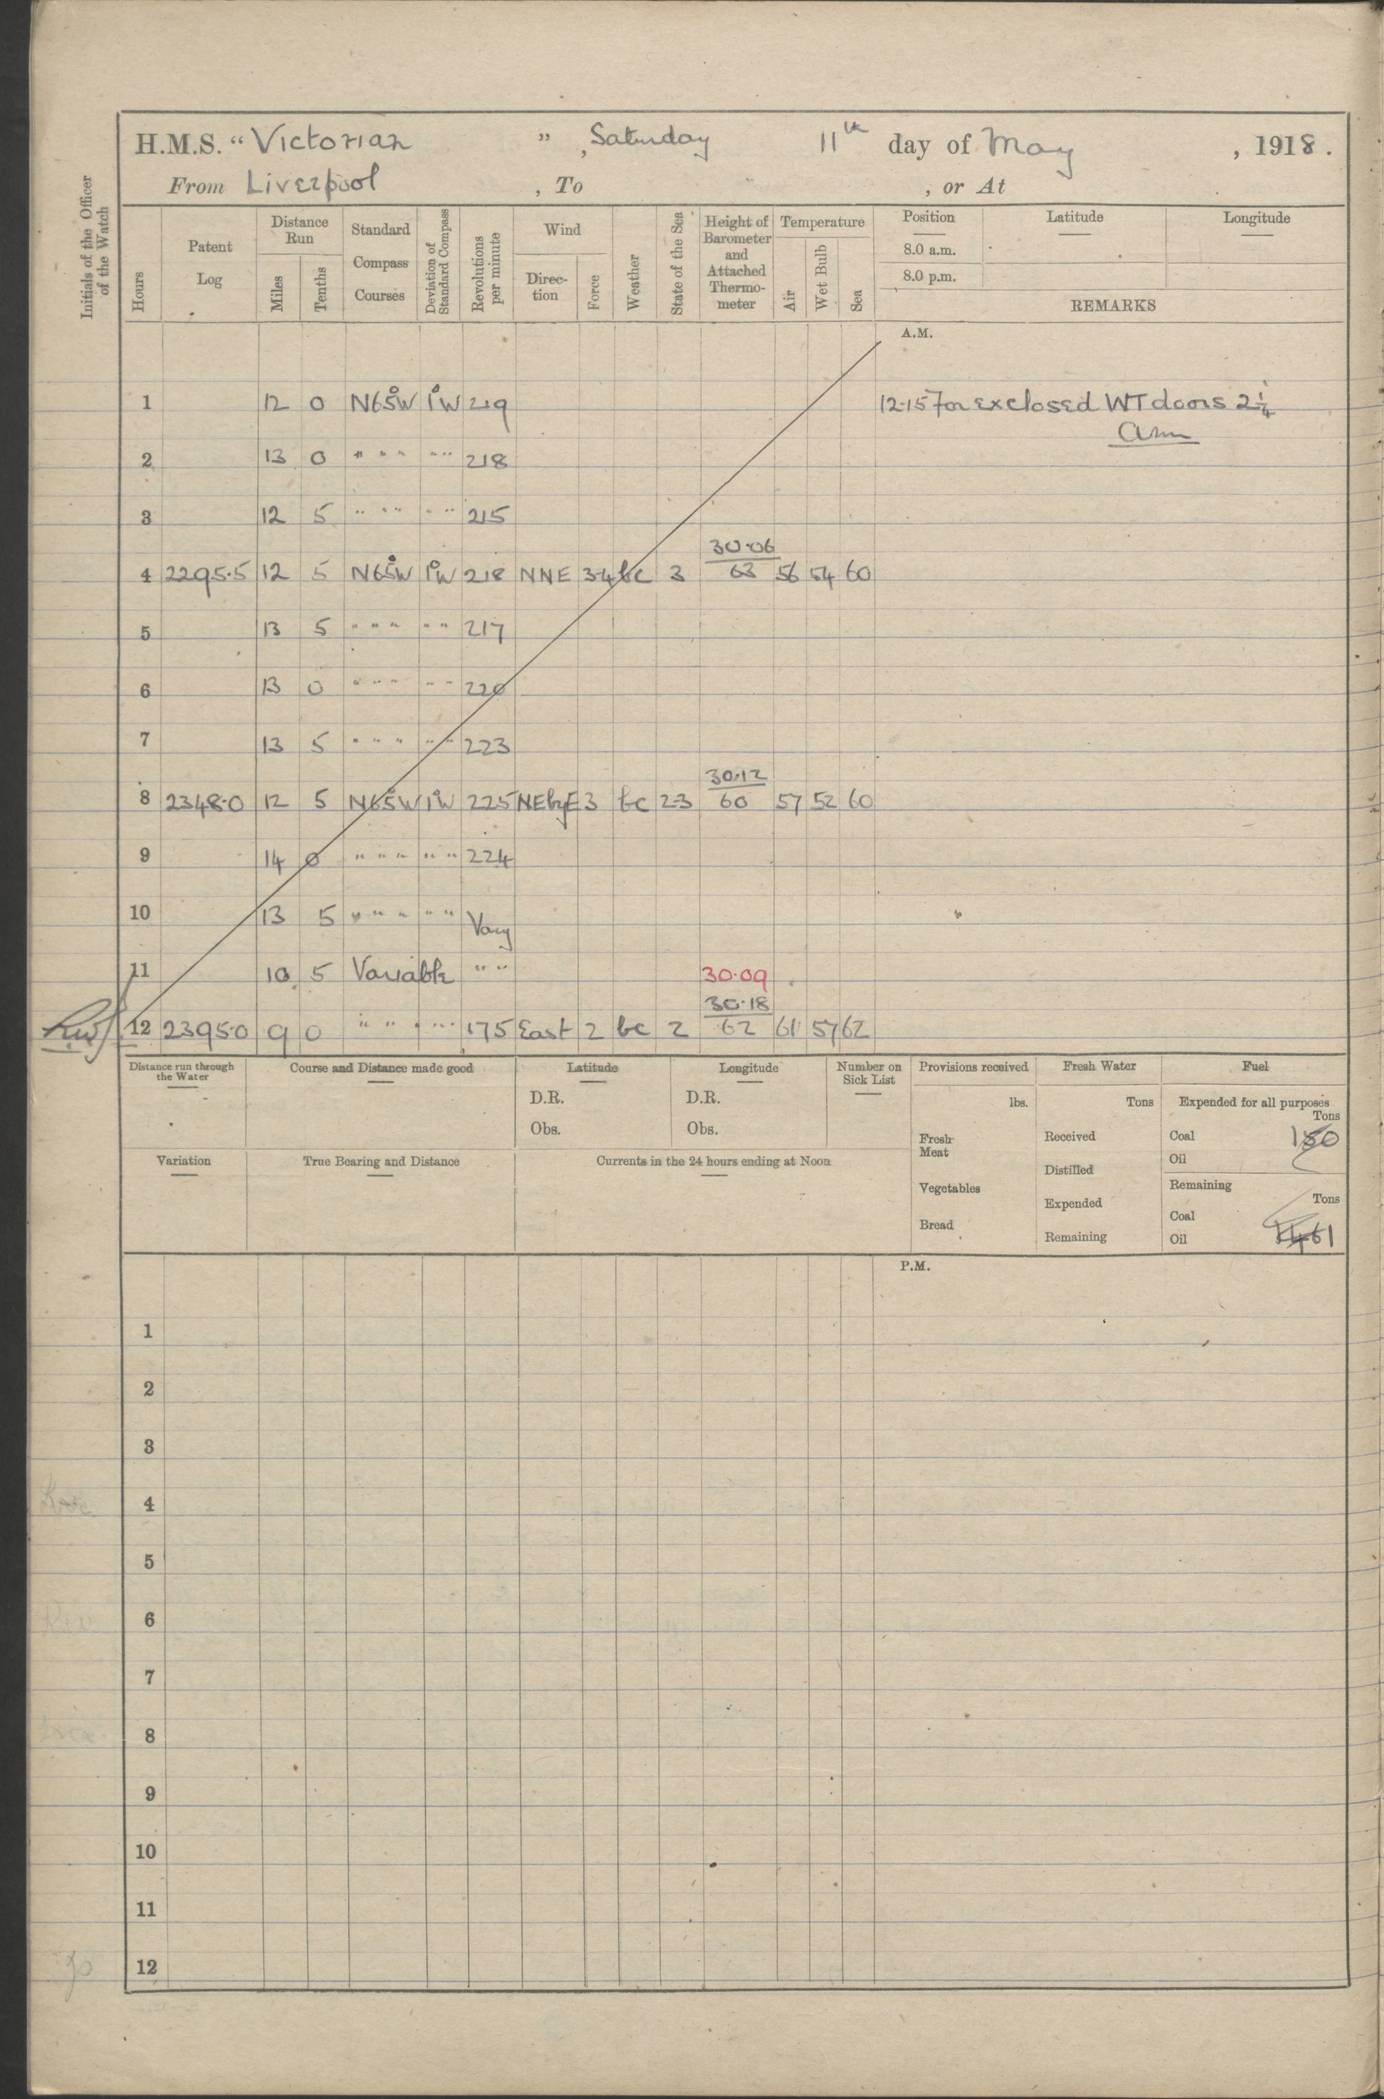 H.M.S. “Victorian”, Saturday 11th day of May, 1918.
From Liverpool, To , or At
Initials of the Officer of the Watch
Hours
Patent Log
Distance Run
Miles
Tenths
Standard Compass Courses
Deviation of Standard Compass
Revolutions per minute
Wind
Direction
Force
Weather
State of the Sea
Height of Barometer and Attached Thermometer
Temperature
Air
Wet Bulb
Sea
Position Latitude Longitude
8.0 a.m.
8.0 p.m.
REMARKS
A.M.
1 12 0 N65°W 1°W 219 12.15 closed WT doors 2 1/4
2 13 0 " " " " " 218
3 12 5 " " " " " 215
30.06
4 2295.5 12 5 N65°W 1°W 218 NNE 3.4 bc 3 63 56 54 60
5 13 5 " " " " " 217
6 13 0 " " " " " 220
7 13 5 " " " " " 223
30.12
8 2348.0 12 5 N65°W 1°W 225 NEbyE 3 bc 2.3 60 57 52 60
9 14 0 " " " " " 224
10 13 5 " " " " " Vary
11 10 5 Variable " " 30.09
30.18
12 2395.0 9 0 " " " " 175 East 2 bc 2 62 61 57 62
Distance run through the Water
Course and Distance made good
Latitude
D.R.
Obs.
Longitude
D.R.
Obs.
Number on Sick List
Provisions received
lbs.
Fresh Meat
Vegetables
Bread
Fresh Water
Tons
Received
Distilled
Expended
Remaining
Fuel
Expended for all purposes
Tons
Coal 150
Oil
Remaining
Tons
Coal
Oil 1461
Variation
True Bearing and Distance
Currents in the 24 hours ending at Noon
P.M.
1
2
3
4
5
6
7
8
9
10
11
12